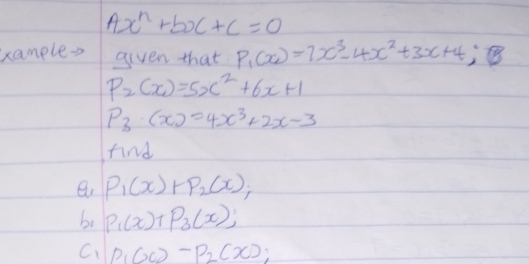 Ax^n + bx + c = 0
xample → given that P₁(x) = 7x³ - 4x² + 3x + 4;
P₂(x) = 5x² + 6x + 1
P₃.(x) = 4x³ + 2x - 3
find
a. P₁(x) + P₂(x);
b. P₁(x) + P₃(x);
C. P₁(x) - P₂(x);